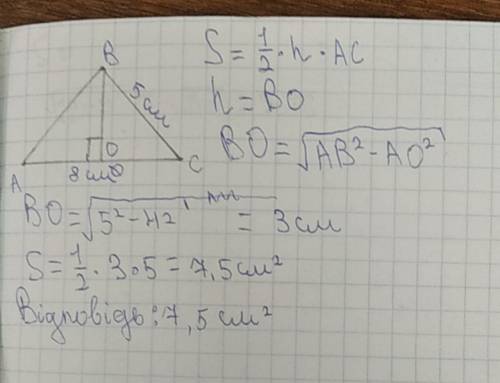 B
5 см
O
A
8 см
C
S = 1/2 · h · AC
h = BO
BO = √AB² - AO²
BO = √5² - 42 = 3 см
S = 1/2 · 3 · 5 = 7,5 см²
Відповідь: 7,5 см²